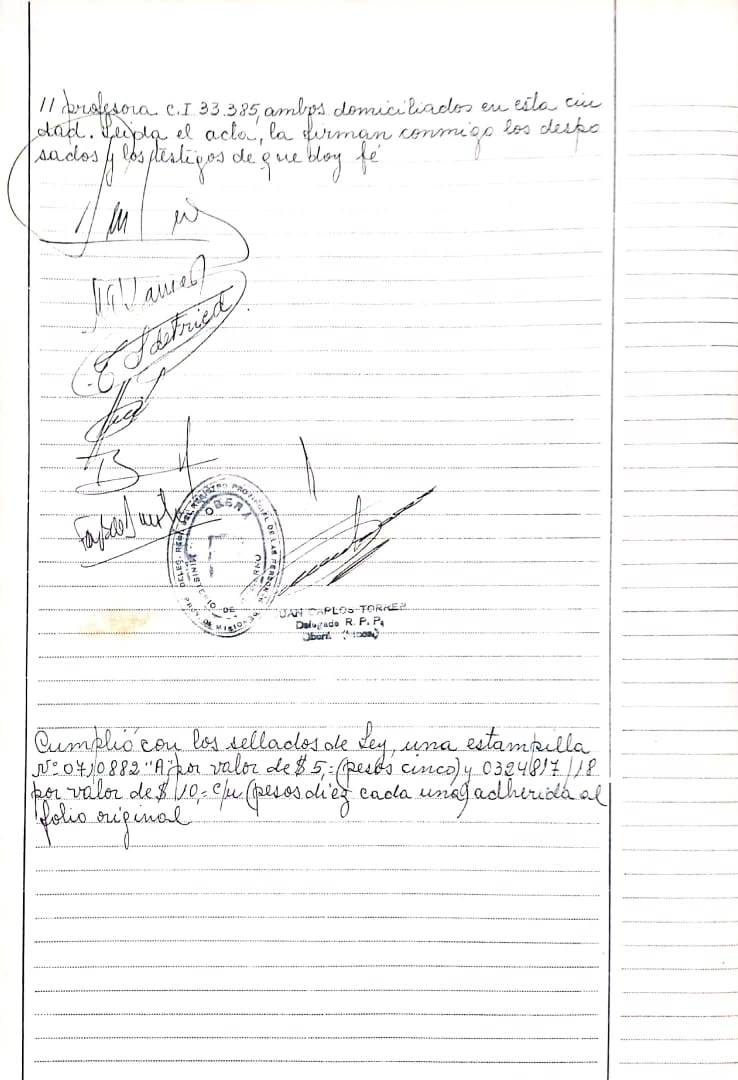 // profesora C.I 33.385, ambos domiciliados en esta ciu
dad. Leida el acta, la firman conmigo los despo
sados y los testigos de que doy fé
E Sdetried
DELEG. REG. DEL REGISTRO PROVINCIAL DE LAS PERSONAS
OBERA
MINISTERIO DE GOBIERNO
PROV. DE MISIONES
JUAN CARLOS TORRES
Delegado R. P. P.
Oberá (Mnes)
Cumplió con los sellados de Ley, una estampilla
Nº 0710882 "A" por valor de $ 5,= (pesos cinco) y 0324817/18
por valor de $ 10,= c/u (pesos diez cada una) adherida al
folio original